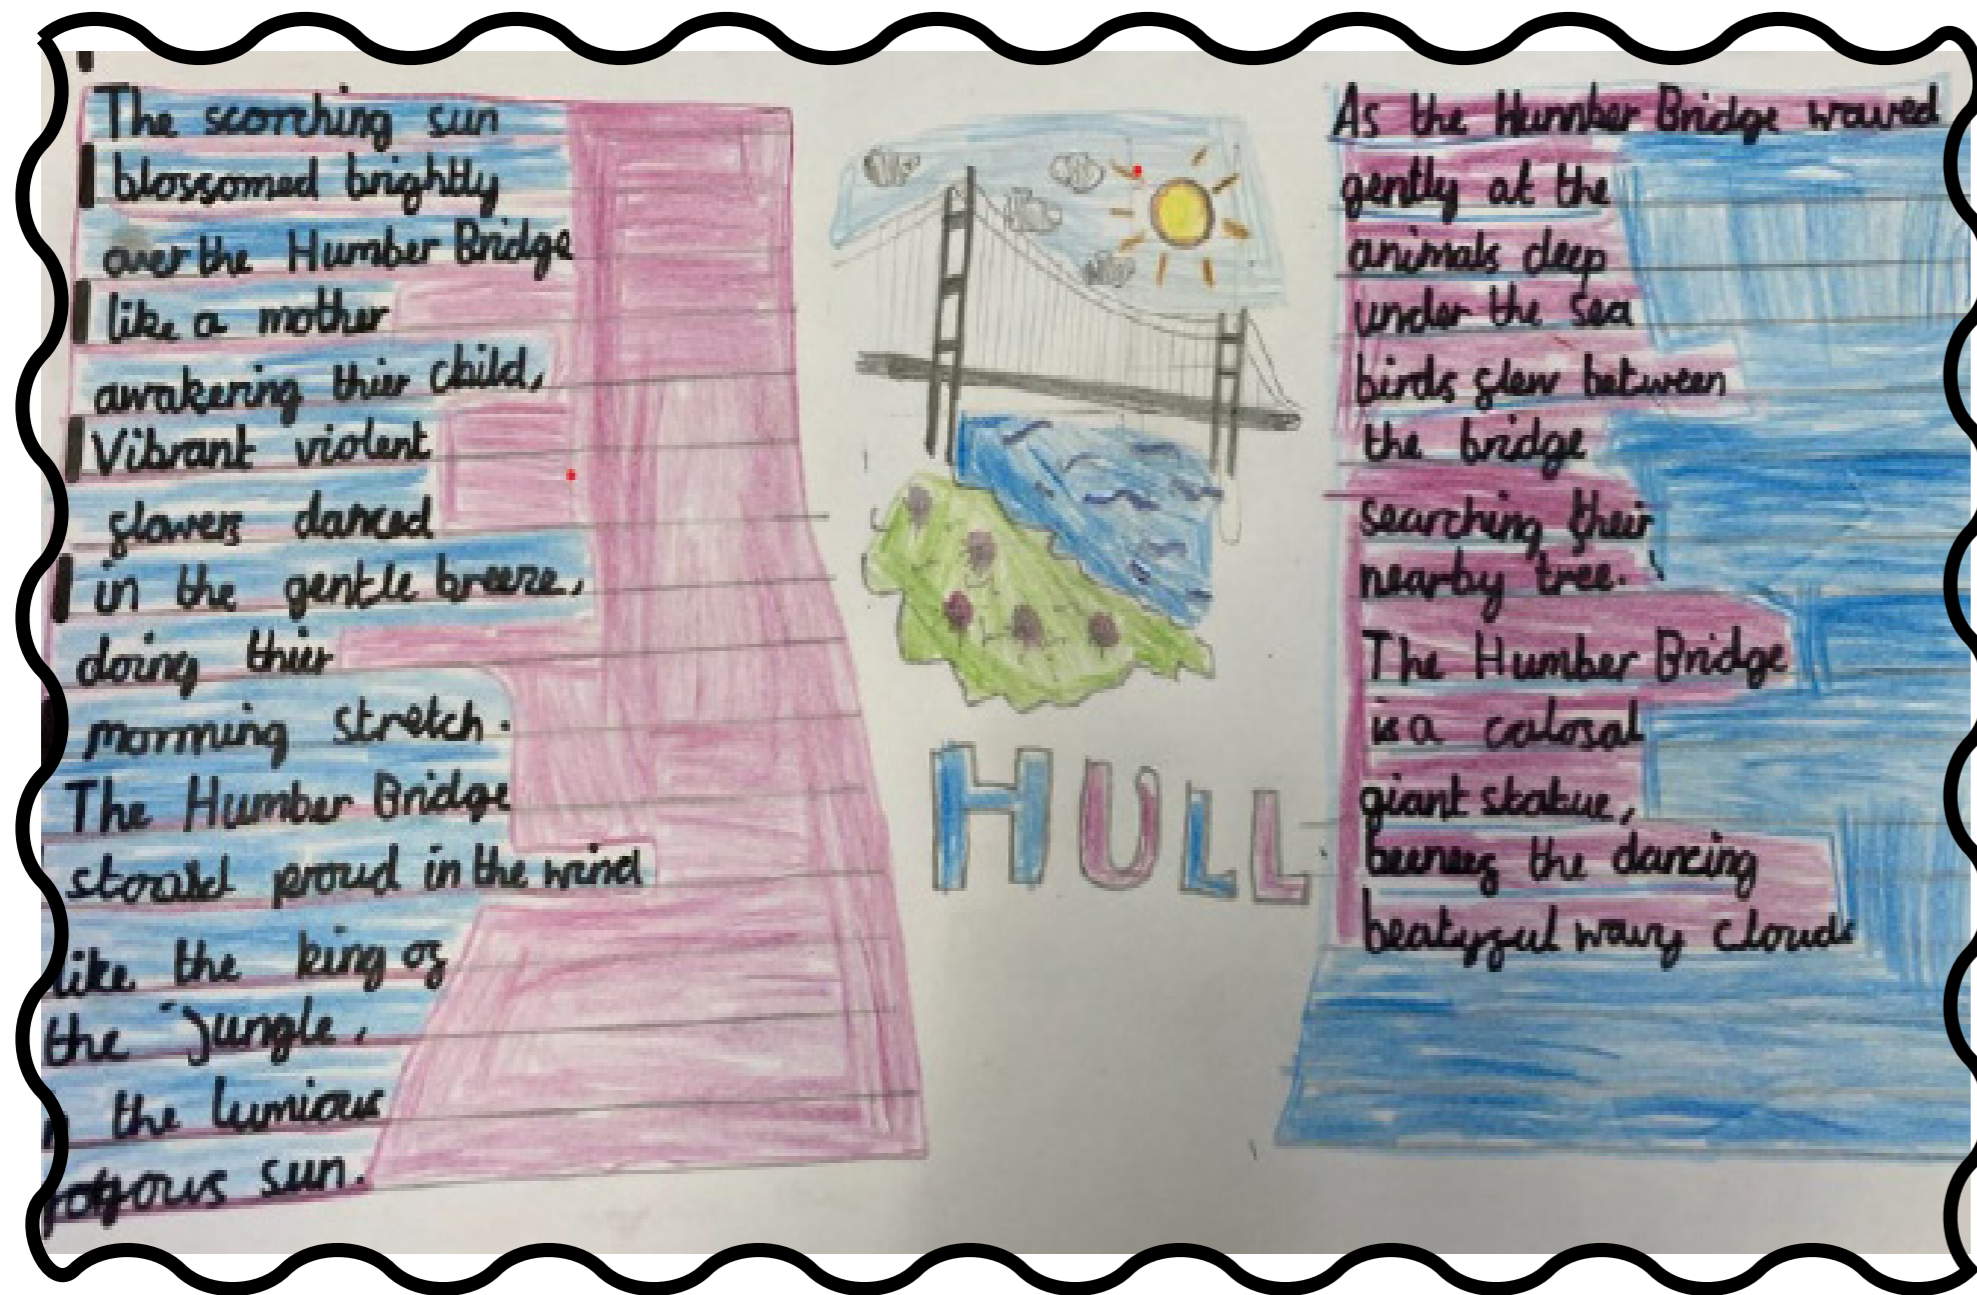 The scorching sun
blossomed brightly
over the Humber Bridge
like a mother
awakering thier child,
Vibrant violent
flowers danced
in the gentle breeze,
doing thier
morrning stretch.
The Humber Bridge
proud in the wind
like the king of
the jungle,
the lumious
sun.
HULL
As the Humber Bridge waved
gently at the
animals deep
under the sea
birds flew between
the bridge
searching their
nearby tree.
The Humber Bridge
is a calosal
giant statue,
the dancing
beatyful wavy clouds